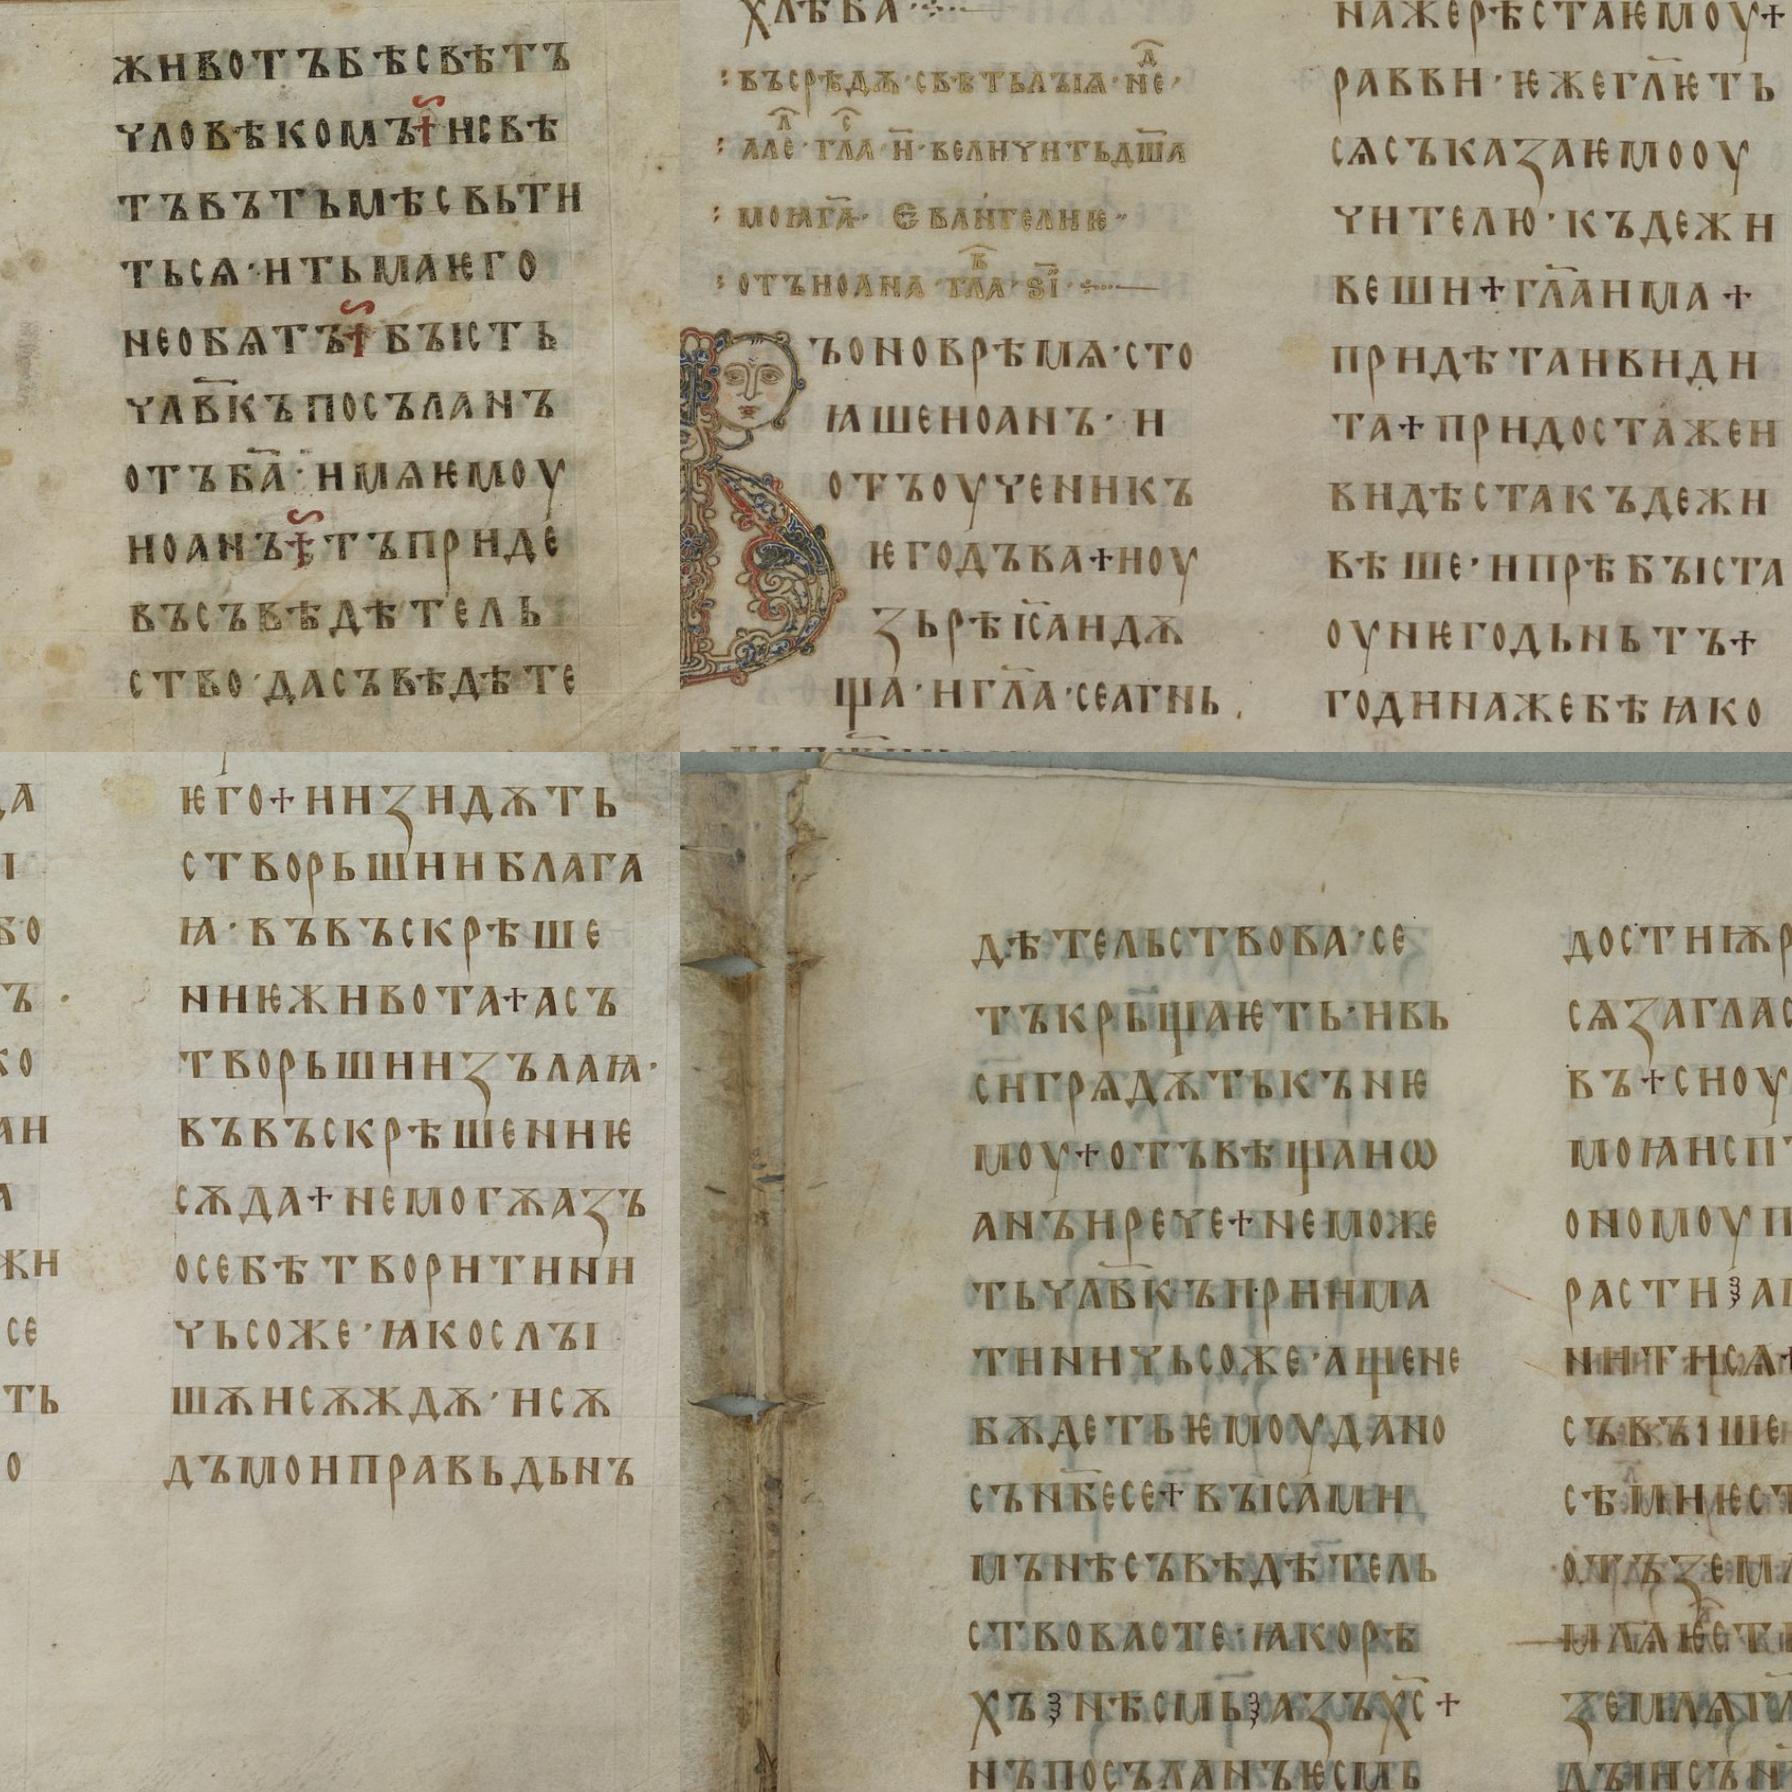 животъбѣсвѣтъ
чловѣкомъ+исвѣ
тъвътьмѣсвьти
тьсѧ·итьмаѥго
необѧтъ+бъістъ
чл҃вкъпосъланъ
отъб҃а·имѧѥмоу
иоанъ+тъприде
въсъвѣдѣтель
ство·дасъвѣдѣте
хлѣба
въсрѣдѫ·свѣтьлъіѩ·не҃д
але҃л·гла҃с·н҃·величитьдш҃а
моѩг҃а· Єваньгелиѥ
отъиоана·гла҃в·ѕ҃і
ъоноврѣмѧ·сто
ꙗшеиоанъ·и
отъоученикъ
ѥгодъва+иоу
зьрѣіс҃аидѫ
ща·игл҃а·сеагнь
нажерѣстаѥмоу+
равви·ѥжегл҃ѥть
сѧсъказаѥмооу
чителю·къдежи
веши+гл҃аима+
придѣтаивиди
та+придостажеи
видѣстакъдежи
вѣше·ипрѣбъіста
оуниѥгодьньтъ+
годинажебѣꙗко
ѥго+иизидѫть
створьшииблага
ꙗ·въвъскрѣше
ниѥживота+асъ
творьшиизълаꙗ·
въвъскрѣшениѥ
сѫда+немогѫазъ
осебѣтворитини
чьсоже·ꙗкослъі
шѫисѫждѫ·исѫ
дъмоиправьдьнъ
дѣтельствова·се
тъкрьщаѥть·ивь
сигрѧдѫтькънѥ
моу+отъвѣщаиѡ
анъирече+неможе
тьчл҃вкъприима
тиничьсоже·ащене
бѫдетьѥмоудано
сън҃бесе+въісами
мънѣсъвѣдѣтель
ствовасте·ꙗкорѣ
хъ·нѣсмь·азъх҃с+
нъпосъланъѥсмь
достиѭр
сѧзаглас
въ+сиоу
моꙗисп
ономоуп
расти
нитисѧ+
съвъіше